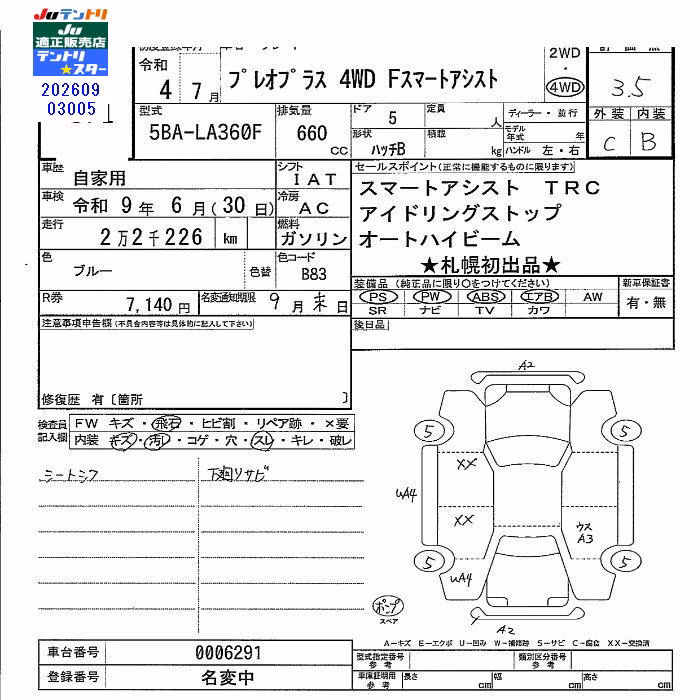 JUテントリ
JU
適正販売店
テントリ
★スター
202609
03005
初度登録年月
令和
4 7月
プレオプラス 4WD Fスマートアシスト
2WD
・
4WD
評価点
3.5
外装 内装
C B
型式
5BA-LA360F
排気量
660 CC
ドア 5
形状 ハッチB
定員 人
積載 kg
ディーラー・並行
モデル年式 年
ハンドル 左・右
車歴 自家用
シフト IAT
車検 令和 9年 6月(30日)
冷房 AC
走行 2万2千226 km
燃料 ガソリン
色 ブルー 色替
色コード B83
R券 7,140円
名変通知期限 9月末日
セールスポイント(正常に機能するものに限ります)
スマートアシスト TRC
アイドリングストップ
オートハイビーム
★札幌初出品★
装備品 (純正品に限り○をつけてください)
PS PW ABS エアB AW
SR ナビ TV カワ
新車保証書
有・無
後日品
注意事項申告欄(不具合内容等は具体的に記入して下さい)
修復歴 有〔箇所 〕
検査員記入欄
FW キズ・飛石・ヒビ割・リペア跡・×要
内装 キズ・汚レ・コゲ・穴・スレ・キレ・破レ
シートシワ
下廻リサビ
A2
5 5
XX
UA4
XX
ウス
A3
5 5
UA4
ポンプ
スペア
A2
A-キズ E-エクボ U-凹み W-補修跡 S-サビ C-腐食 XX-交換済
車台番号 0006291
登録番号 名変中
型式指定番号 参考
類別区分番号 参考
車庫証明用 参考
長さ cm 幅 cm 高さ cm